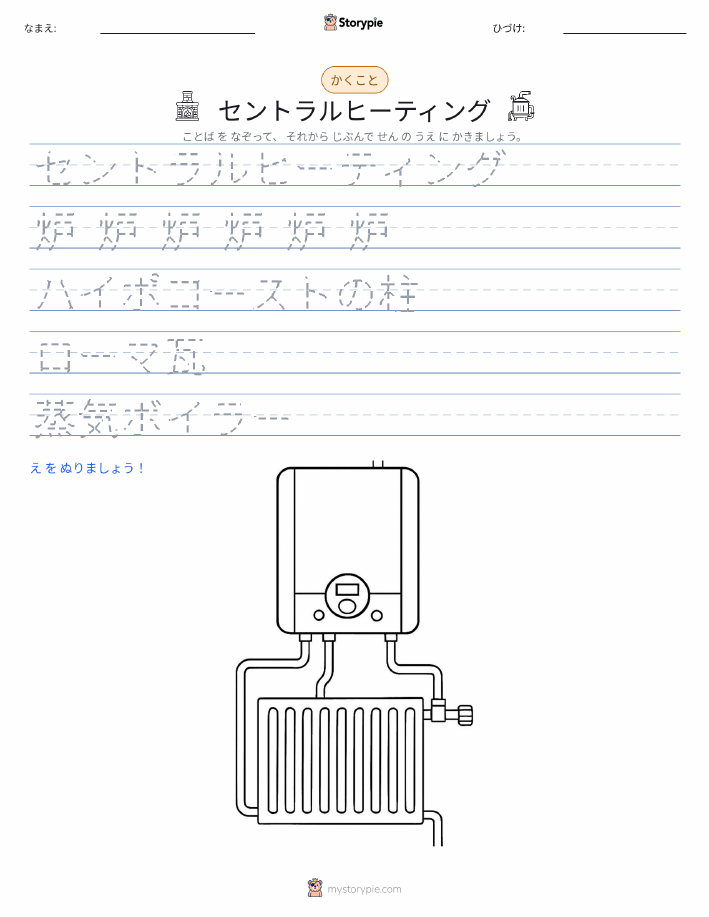 なまえ:
Storypie
ひづけ:
かくこと
セントラルヒーティング
ことば を なぞって、 それから じぶんで せん の うえ に かきましょう。
セントラルヒーティング
炉 炉 炉 炉 炉 炉
ハイポコーストの柱
ローマ瓦
蒸気ボイラー
え を ぬりましょう！
mystorypie.com